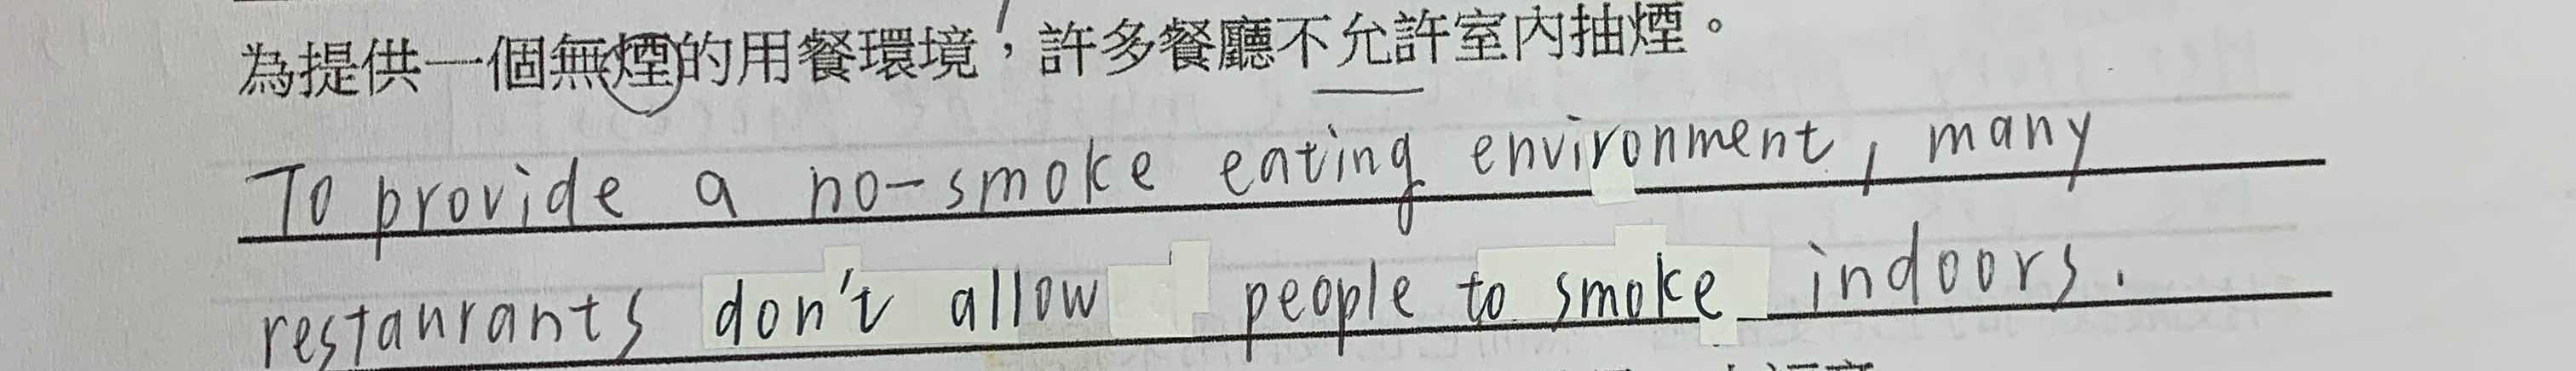 為提供一個無煙的用餐環境，許多餐廳不允許室內抽煙。
To provide a no-smoke eating environment, many
restaurants don't allow people to smoke indoors.